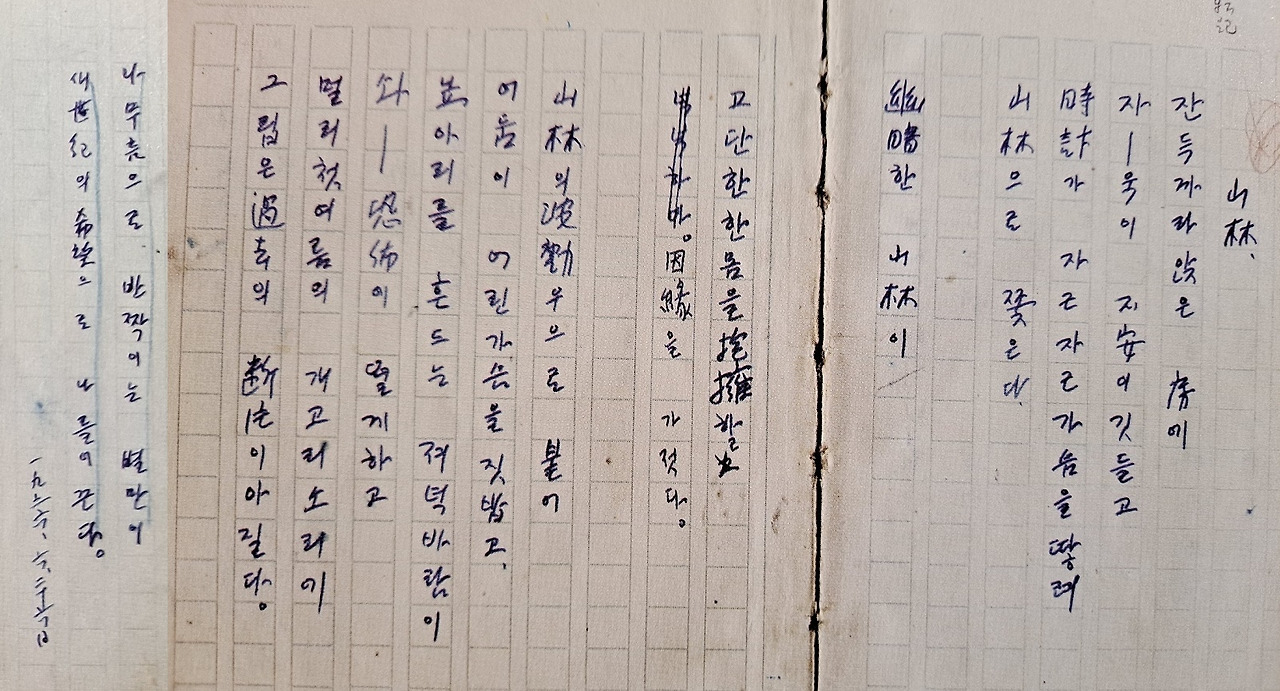 山林.
잔득 까라앉은 房에
자―욱이 不安이 깃들고
時計가 자근자근 가슴을 땋려
山林으로 쫓은다.
幽暗한 山林이
고단한 한몸을 抱擁할
因緣을 가젓다.
山林의 波動 우으로 붙어
어둠이 어린가슴을 짓밟고.
닢아리를 흔드는 져녁바람이
솨―恐怖에 떨게하고
멀리 첫여름의 개고리소리에
그립은 過去의 斷片이 아질다.
나무틈으로 반짝이는 별만이
새世紀의 希望으로 나를 이끈다.
一九三六、六、二十六日